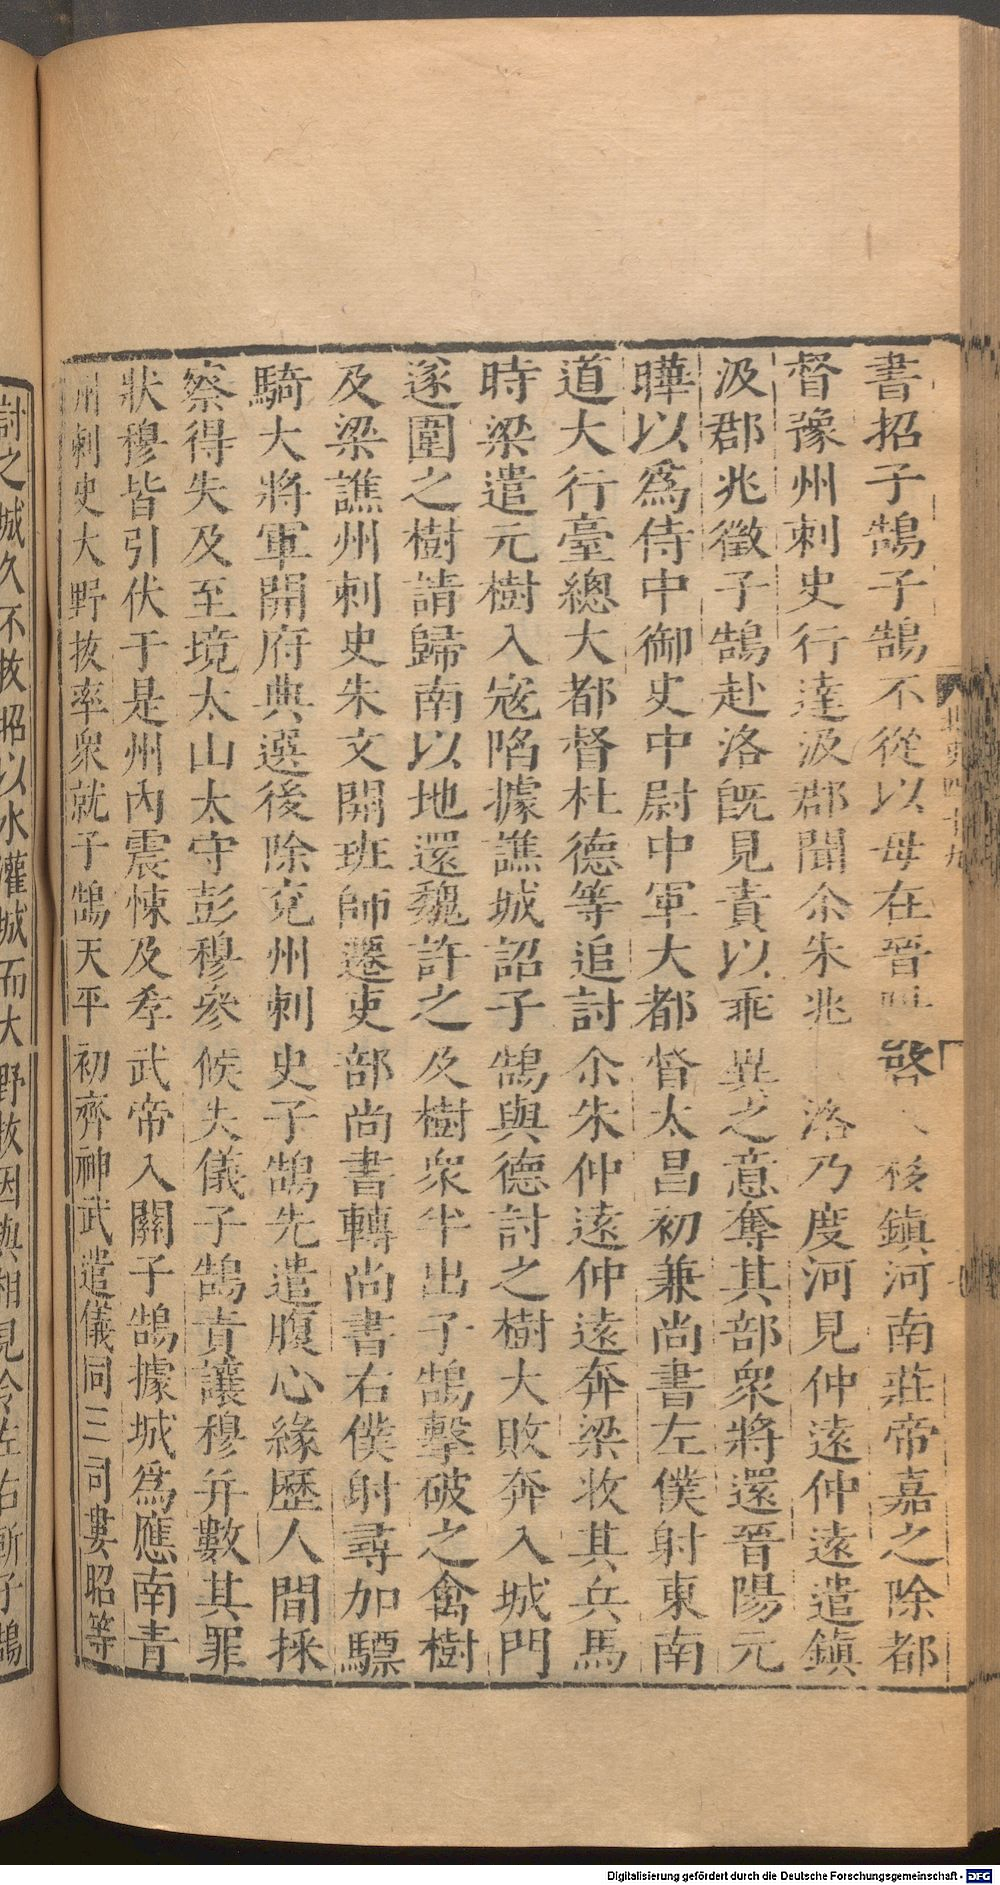 書招子鵠子鵠不從以母在晉啓移鎮河南莊帝嘉之除都
督豫州刺史行達汲郡聞尒朱兆洛乃度河見仲遠仲遠遣鎮
汲郡兆徵子鵠赴洛旣見責以乖異之意奪其部衆將還晉陽元
曄以爲侍中御史中尉中軍大都督太昌初兼尚書左僕射東南
道大行臺總大都督杜德等追討尒朱仲遠仲遠奔梁收其兵馬
時梁遣元樹入寇陷據譙城詔子鵠與德討之樹大敗奔入城門
遂圍之樹請歸南以地還魏許之及樹衆半出子鵠擊破之禽樹
及梁譙州刺史朱文開班師遷吏部尚書轉尚書右僕射尋加驃
騎大將軍開府典選後除兗州刺史子鵠先遣腹心緣歷人間採
察得失及至境太山太守彭穆參候失儀子鵠責讓穆并數其罪
狀穆皆引伏于是州內震悚及孝武帝入關子鵠據城爲應南青
州刺史大野拔率衆就子鵠天平初齊神武遣儀同三司婁昭等
討之城久不拔昭以水灌城而大野拔因與相見令左右斬子鵠
北史四十九
Digitalisierung gefördert durch die Deutsche Forschungsgemeinschaft - DFG